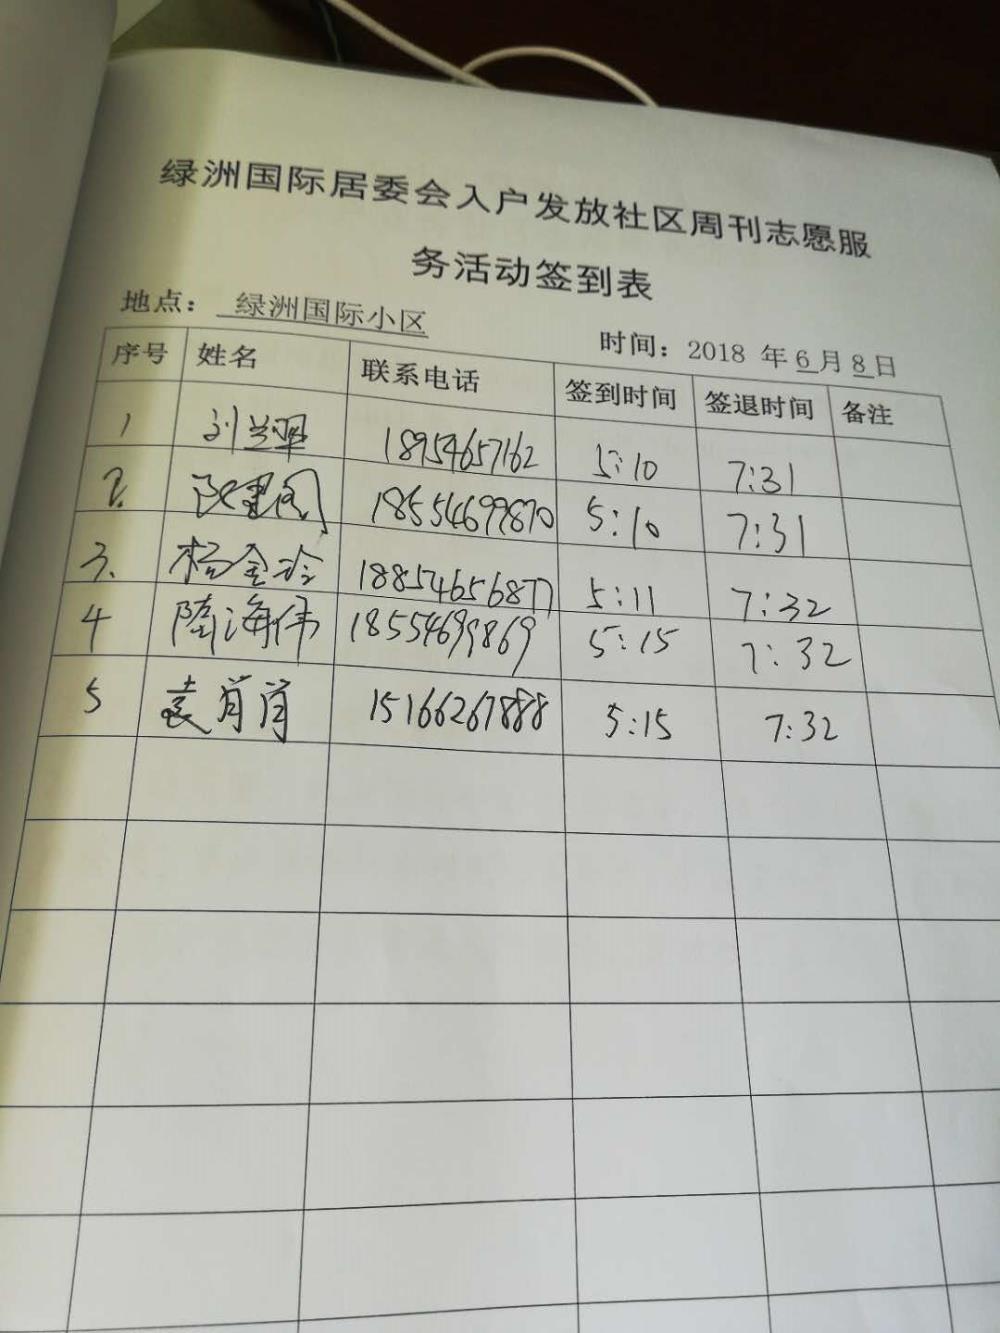 绿洲国际居委会入户发放社区周刊志愿服
务活动签到表
地点： 绿洲国际小区
时间：2018 年 6 月 8 日
序号 姓名 联系电话 签到时间 签退时间 备注
1 刘兰翠 18954657162 5:10 7:31
2. 18554699870 5:10 7:31
3. 杨金玲 18854656877 5:11 7:32
4 隋海伟 18554699869 5:15 7:32
5 袁肖肖 15166267888 5:15 7:32